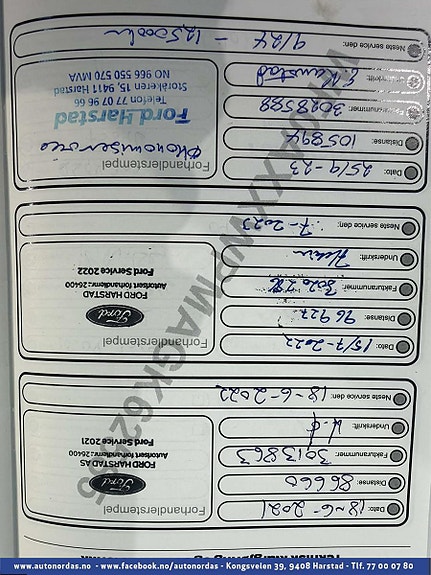 Dato: 18-6-2021
Distanse: 86660
Fakturanummer: 3013863
Underskrift:
Neste service den: 18-6-2022
Forhandlerstempel
Ford
FORD HARSTAD AS
Autorisert forhandlernr.:26400
Ford Service 2021
Dato: 15/7-2022
Distanse: 96927
Fakturanummer:
Underskrift:
Neste service den: 7-2023
Forhandlerstempel
Ford
FORD HARSTAD
Autorisert forhandlernr.:26400
Ford Service 2022
Dato: 25/9-23
Distanse: 105894
Fakturanummer: 3028588
Underskrift:
Neste service den: 9/24 - 12,5000km
Forhandlerstempel
Økonomiservice
Ford Harstad
Telefon 77 07 96 66
Storåkeren 15, 9411 Harstad
NO 966 550 570 MVA
Url: www.autonordas.no - www.facebook.no/autonordas - Kongsveien 39, 9408 Harstad - Tlf. 77 00 07 80